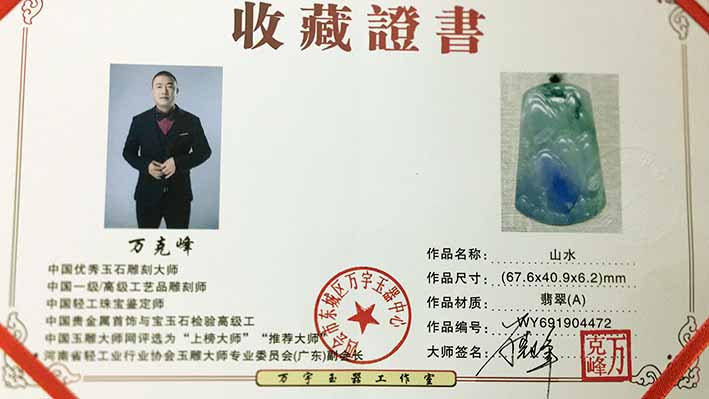 收藏證書
万克峰
中国优秀玉石雕刻大师
中国一级/高级工艺品雕刻师
中国轻工珠宝鉴定师
中国贵金属首饰与宝玉石检验高级工
中国玉雕大师网评选为“上榜大师” “推荐大师”
河南省轻工业行业协会玉雕大师专业委员会(广东)副会长
四会市东城区万宇玉器中心
作品名称: 山水
作品尺寸: (67.6x40.9x6.2)mm
作品材质: 翡翠(A)
作品编号: WY691904472
大师签名:
万克峰
万宇玉器工作室